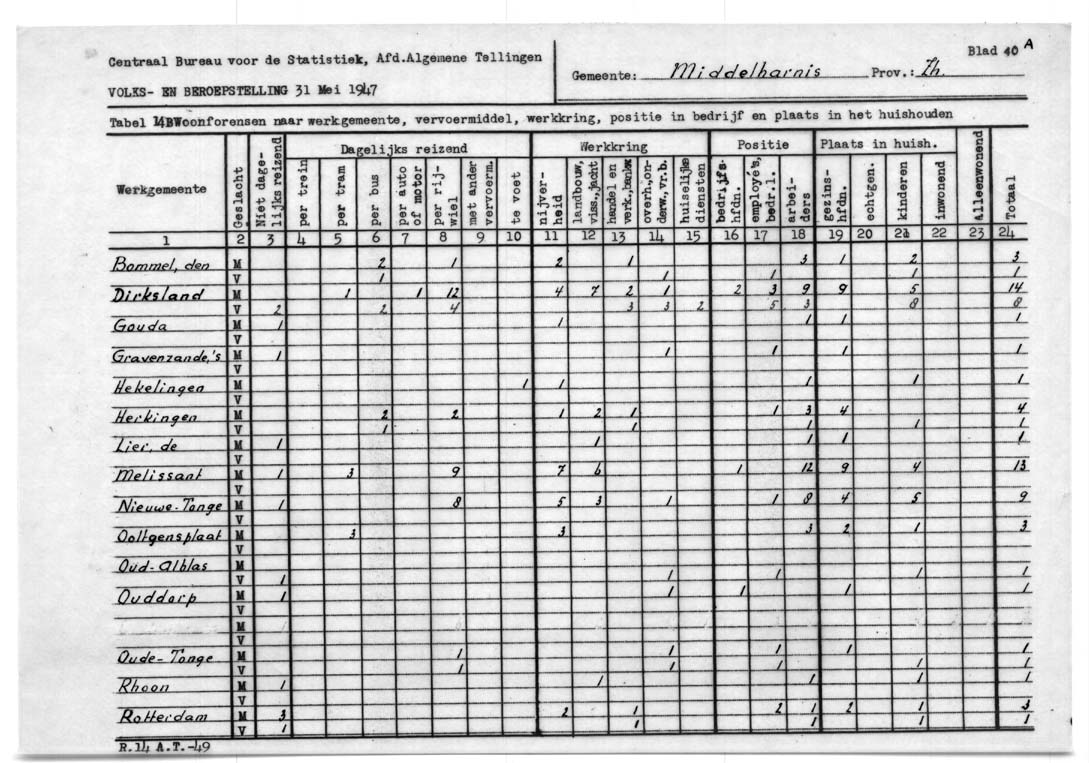 Blad 40 A
Centraal Bureau voor de Statistiek, Afd.Algemene Tellingen
Gemeente: Middelharnis Prov.: Zh.
VOLKS- EN BEROEPSTELLING 31 Mei 1947
Tabel 14B Woonforensen naar werkgemeente, vervoermiddel, werkkring, positie in bedrijf en plaats in het huishouden
Dagelijks reizend Werkkring Positie Plaats in huish.
Werkgemeente Geslacht Niet dage-lijks reizend per trein per tram per bus per auto of motor per rij-wiel met ander vervoerm. te voet nijver-heid landbouw, viss., jacht handel en verk., bankw. overh., on-derw., vr.b. huiselijke diensten bedrijfs-hfdn. employé's, bedr.l. arbei-ders gezins-hfdn. echtgen. kinderen inwonend Alleenwonend Totaal
1 2 3 4 5 6 7 8 9 10 11 12 13 14 15 16 17 18 19 20 21 22 23 24
Bommel, den M 2 1 2 1 3 1 2 3
V 1 1 1 1 1
Dirksland M 1 1 12 4 7 2 1 2 3 9 9 5 14
V 2 2 4 3 3 2 5 3 8 8
Gouda M 1 1 1 1 1
V
Gravenzande,'s M 1 1 1 1 1
V
Hekelingen M 1 1 1 1 1
V
Herkingen M 2 2 1 2 1 1 3 4 4
V 1 1 1 1 1
Lier, de M 1 1 1 1 1
V
Melissant M 1 3 9 7 6 1 12 9 4 13
V
Nieuwe-Tonge M 1 8 5 3 1 1 8 4 5 9
V
Ooltgensplaat M 3 3 3 2 1 3
V
Oud-Alblas M
V 1 1 1 1 1
Ouddorp M 1 1 1 1 1
V
M
V
Oude-Tonge M 1 1 1 1 1
V 1 1 1 1 1
Rhoon M 1 1 1 1 1
V
Rotterdam M 3 2 1 2 1 2 1 3
V 1 1 1 1 1
R.14 A.T.-49